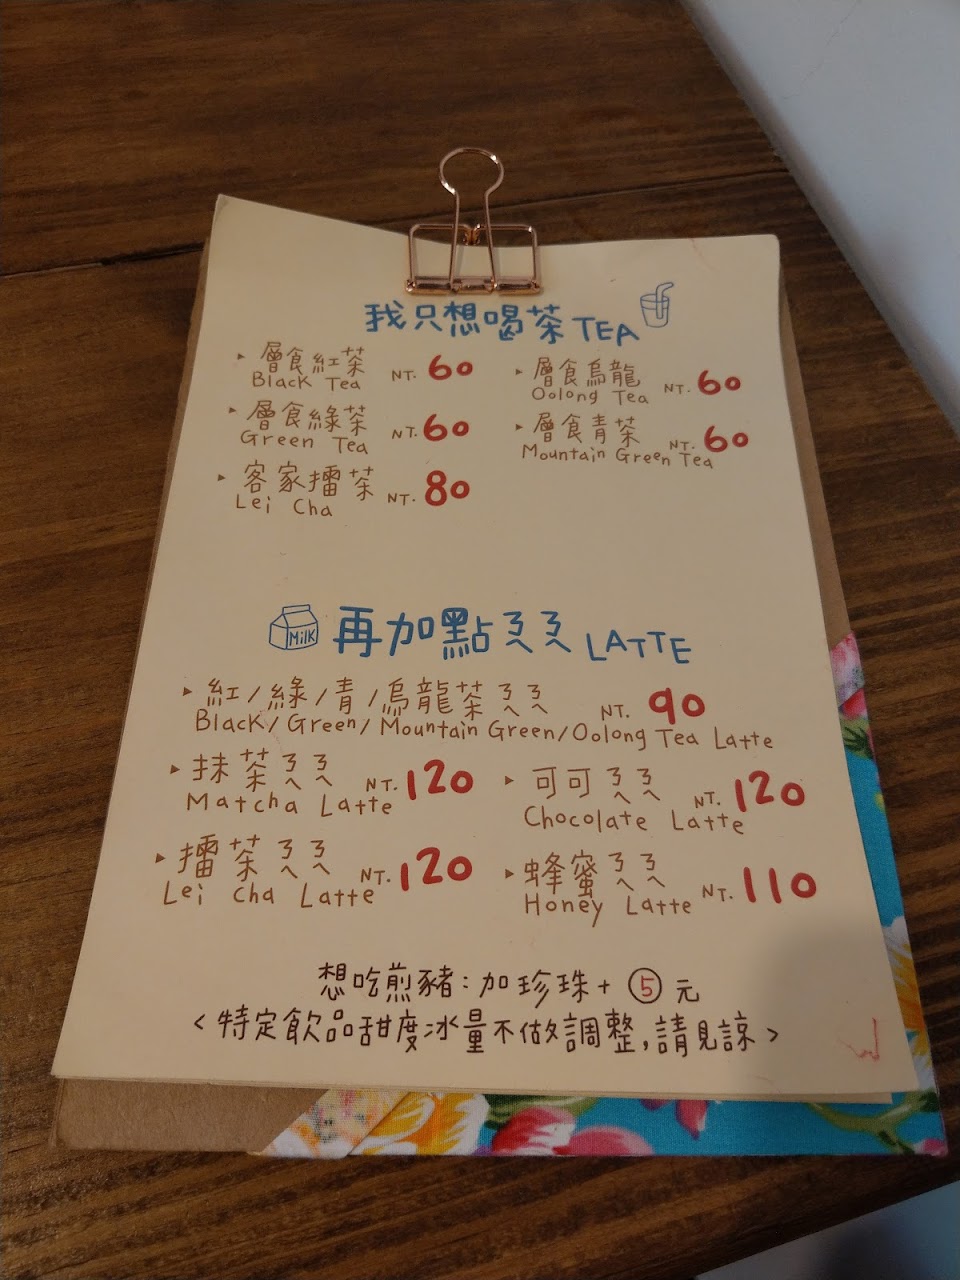 我只想喝茶 TEA
▸ 層食紅茶 NT. 60
Black Tea
▸ 層食烏龍 NT. 60
Oolong Tea
▸ 層食綠茶 NT. 60
Green Tea
▸ 層食青茶 NT. 60
Mountain Green Tea
▸ 客家擂茶 NT. 80
Lei Cha
Milk 再加點ㄋㄟㄋㄟ LATTE
▸ 紅/綠/青/烏龍茶ㄋㄟㄋㄟ NT. 90
Black/Green/Mountain Green/Oolong Tea Latte
▸ 抹茶ㄋㄟㄋㄟ NT. 120
Matcha Latte
▸ 可可ㄋㄟㄋㄟ NT. 120
Chocolate Latte
▸ 擂茶ㄋㄟㄋㄟ NT. 120
Lei Cha Latte
▸ 蜂蜜ㄋㄟㄋㄟ NT. 110
Honey Latte
想吃煎豬:加珍珠+⑤元
<特定飲品甜度冰量不做調整,請見諒>